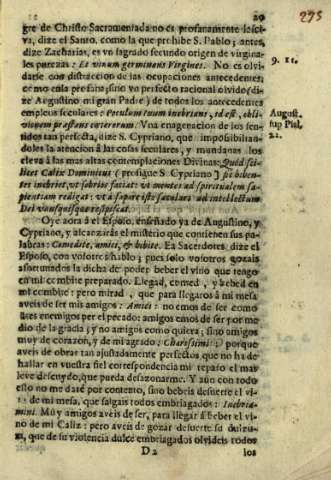 29
295
gre de Christo Sacramentada no es profanamente lasci-
va, dize el Santo, como la que prohibe S. Pablo; antes,
dize Zacharias, es vn sagrado fecundo origen de virgina-
les purezas: Et vinum germinans Virgines. No es olvi-
9. 11.
darse con distraccion de las ocupaciones antecedentes,
como enla profana; sino vn perfecto racional olvido (di-
ze Augustino mi gran Padre) de todos los antecedentes
empleos seculares: Poculum tuum inebrians, id est, obli-
August.
vionem præstans veterorum. Vna enagenacion de los sen-
sup Psal.
tidos tan perfecta, dize S. Cypriano, que impossibilitan-
22.
doles la atencion à las cosas seculares, y mundanas los
eleva à las mas altas contemplaciones Divinas: Quid sci-
licet Calix Dominicus (prosigue S. Cypriano) sic biben-
tes inebriet, vt sobrios faciat: vt mentes ad spiritualem sa-
pientiam redigat: vt à sapore isto sæculari ad intellectum
Dei vnusquisque resipiscat.
Oye aora à el Esposo, enseñado ya de Augustino, y
Cypriano, y alcanzaràs el misterio que contienen sus pa-
labras: Comedite, amici, & bibite. Ea Sacerdotes, dize el
Esposo, con vosotros hablo; pues solo vosotros gozais
afortunados la dicha de poder beber el vino que tengo
en mi combite preparado. Llegad, comed, y bebed en
mi combite: pero mirad, que para llegaros à mi mesa
aveis de ser mis amigos: Amici: no emos de ser como
antes enemigos por el pecado: amigos emos de ser por me
dio de la gracia; y no amigos como quiera; sino amigos
muy de corazon, y de mi agrado: Charissimi: porque
aveis de obrar tan ajustadamente perfectos que no ha de
hallar en vuestra fiel correspondencia mi reparo el mas
leve descuydo, que pueda desazonarme. Y aun con todo
esso no me darè por contento, sino bebeis de suerte el vi-
no de mi mesa, que salgais todos embriagados: Inebria-
mini. Muy amigos aveis de ser, para llegar à beber el vi-
no de mi Caliz: pero aveis de gozar de suerte su dulzu-
ra, que de su violencia dulce embriagados olvideis todos
D 2
los